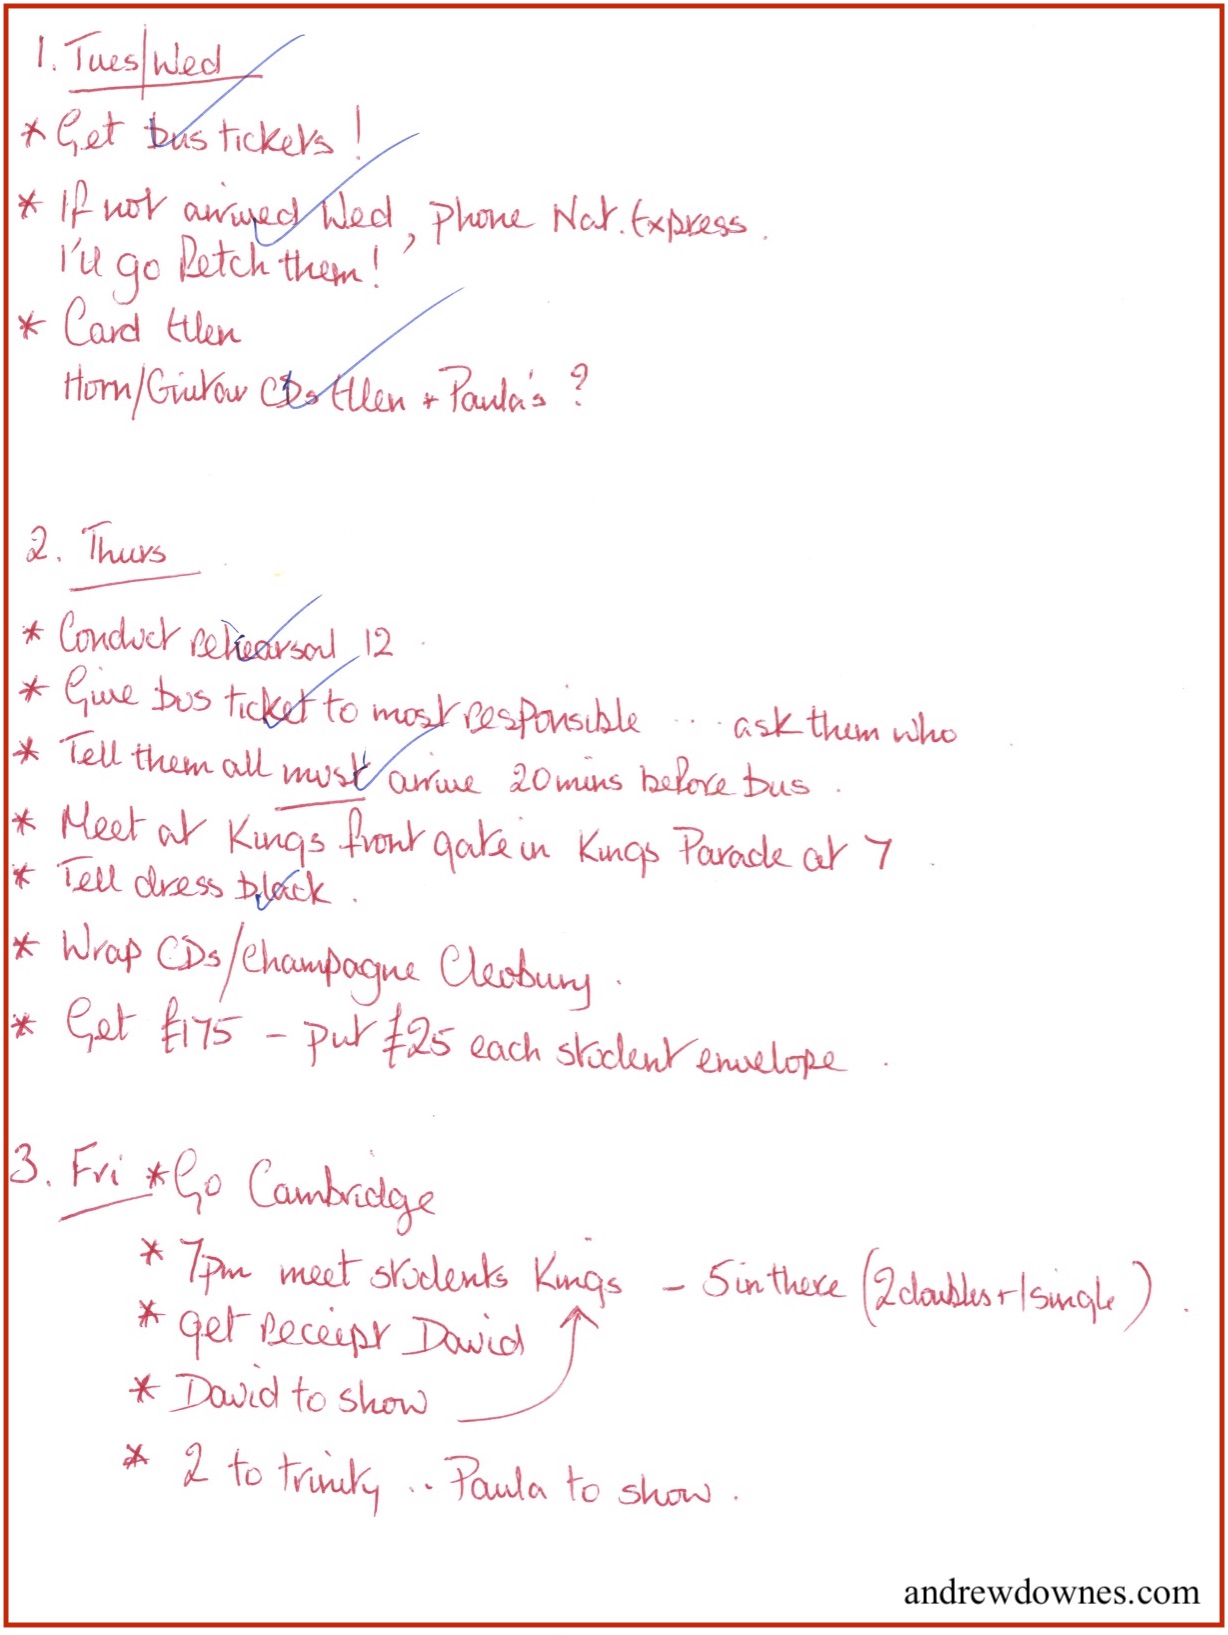 1. Tues/Wed
* Get bus tickets!
* If not arrived Wed, phone Nat. Express.
I'll go fetch them!
* Card Ellen
Horn/Guitar CDs Ellen + Paula's ?
2. Thurs
* Conduct rehearsal 12
* Give bus ticket to most responsible ... ask them who
* Tell them all must arrive 20 mins before bus.
* Meet at Kings front gate in Kings Parade at 7
* Tell dress black.
* Wrap CDs/Champagne Cleobury.
* Get £175 - put £25 each student envelope.
3. Fri * Go Cambridge
* 7pm meet students Kings - 5 in there (2 doubles + 1 single).
* get receipt David
* David to show
* 2 to trinity .. Paula to show.
andrewdownes.com